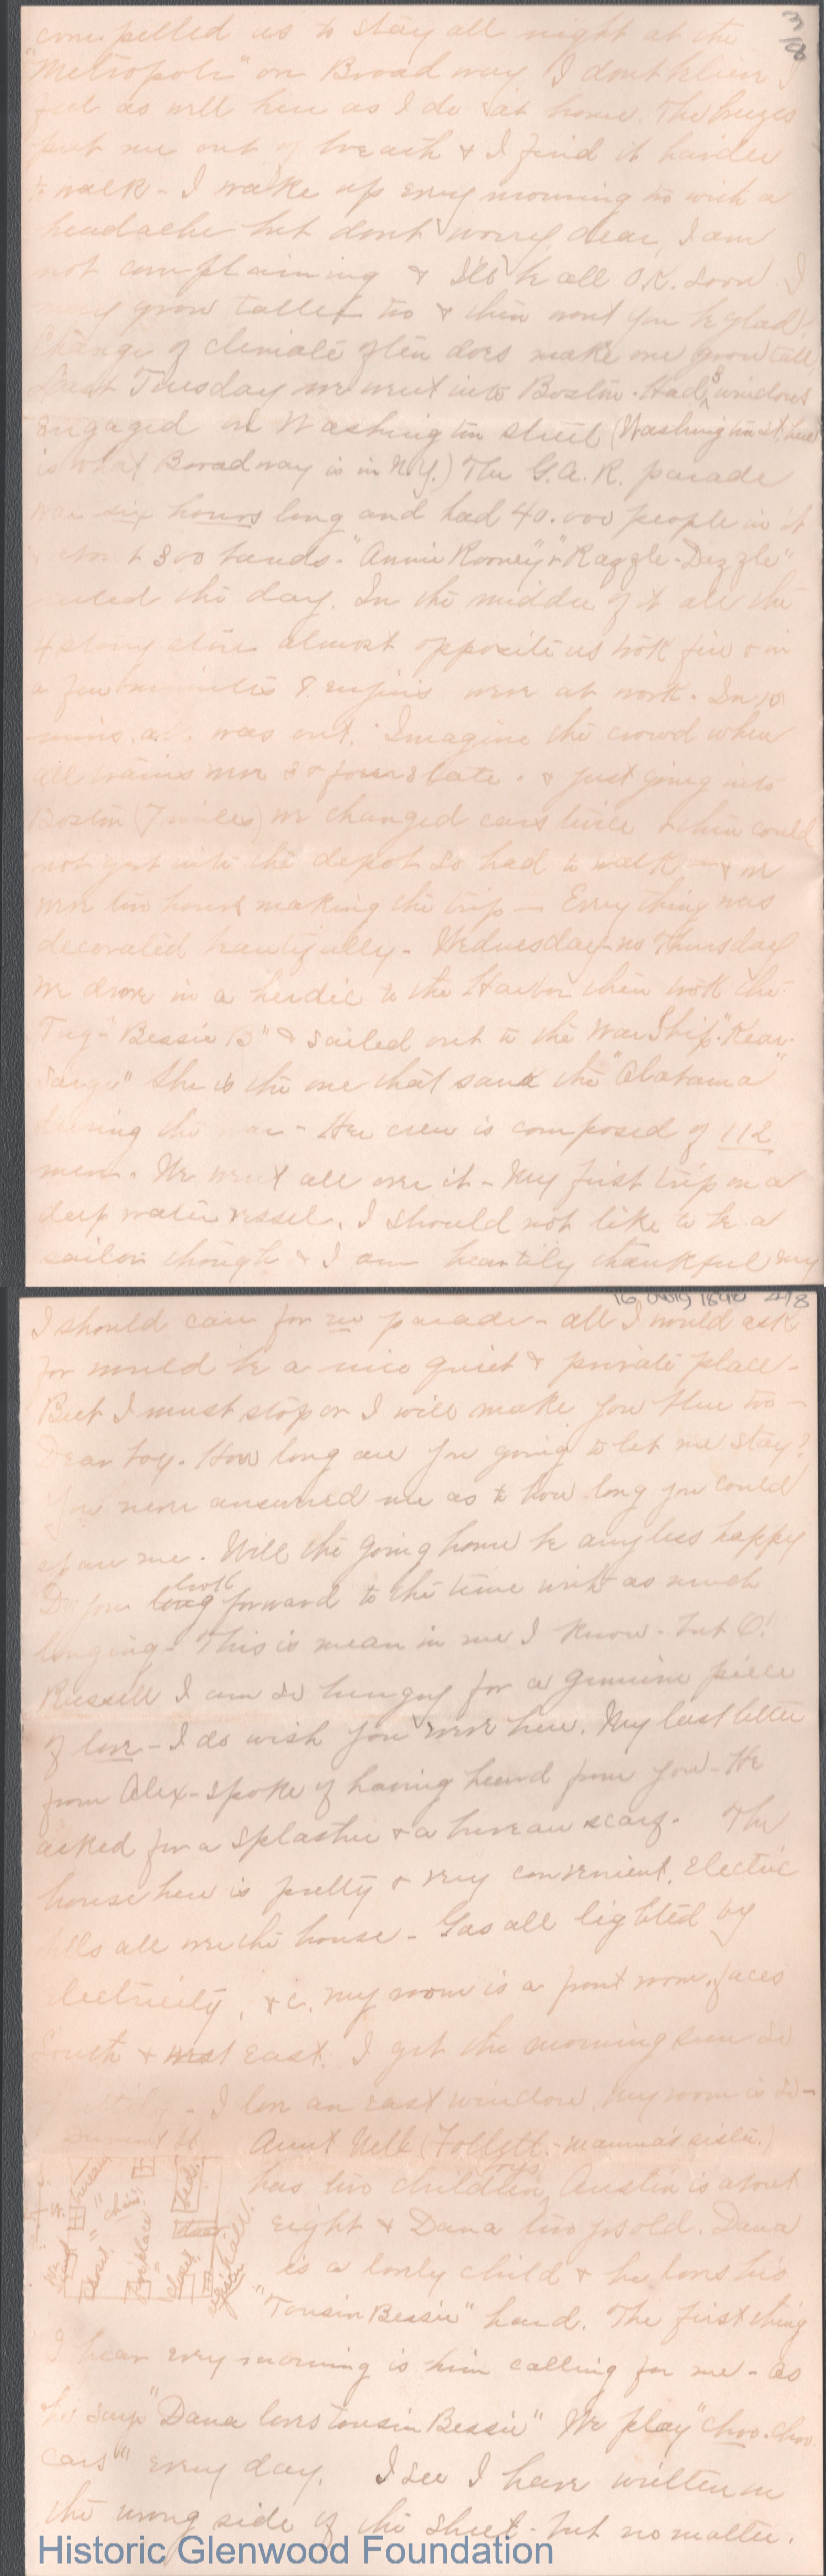 3/8
compelled us to stay all night at the
"Metropole" on Broadway I dont believe I
feel as well here as I do at home. The breezes
put me out of breath & I find it harder
to walk - I wake up every morning too with a
headache but dont worry dear, I am
not complaining & I'll be all O.K. soon I
may grow taller too & then wont you be glad!
Change of climate often does make one grow tall
Last Tuesday we went into Boston. Had 3 windows
engaged on Washington street (Washington st. here
is what Broadway is in N.Y.) The G.A.R. parade
was six hours long and had 40.000 people in it
& 300 bands - "Annie Rooney" & "Razzle-Dazzle"
ruled the day. In the middle of it all the
4 story store almost opposite us took fire & in
a few minutes 8 engines were at work. In 10
mins. all was out. Imagine the crowd when
all trains were 3 & four hours late. & just going into
Boston (7 miles) we changed cars twice & then could
not get into the depot so had to walk - & we
were two hours making the trip - Every thing was
decorated beautifully - Wednesday - no Thursday
we drove in a herdic to the Harbor then took the
Tug - "Bessie B" & sailed out to the War Ship "Kear-
sarge" She is the one that sank the "Alabama"
during the war - Her crew is composed of 112
men. We went all over it - My first trip on a
deep water vessel. I should not like to be a
sailor though & I am heartily thankful my
16 Aug 1890 4/8
I should care for no parade - all I would ask
for would be a nice quiet & private place -
But I must stop or I will make you blue too -
Dear boy. How long are you going to let me stay?
You never answered me as to how long you could
spare me. Will the going home be any less happy
Do you long look forward to the time with as much
longing - This is mean in me I know - but O!
Russell I am so hungry for a genuine piece
of love - I do wish you were here. My last letter
from Alex - spoke of having heard from you - He
asked for a splasher & a bureau scarf. The
house here is pretty & very convenient. Electric
bells all over the house - Gas all lighted by
electricity, &c. My room is a front room, faces
South & west east. I get the morning sun so
- I love an east window, my room is so -
Aunt Nell (Follett - mamma's sister.)
has two children boys, Austin is about
eight & Dana two yrs old. Dana
is a lovely child & he loves his
"Tousin Bessie" hard. The first thing
I hear every morning is him calling for me - as
he says "Dana loves tousin Bessie" We play "choo-choo
cars" every day. I see I have written on
the wrong side of the sheet - but no matter.
Historic Glenwood Foundation